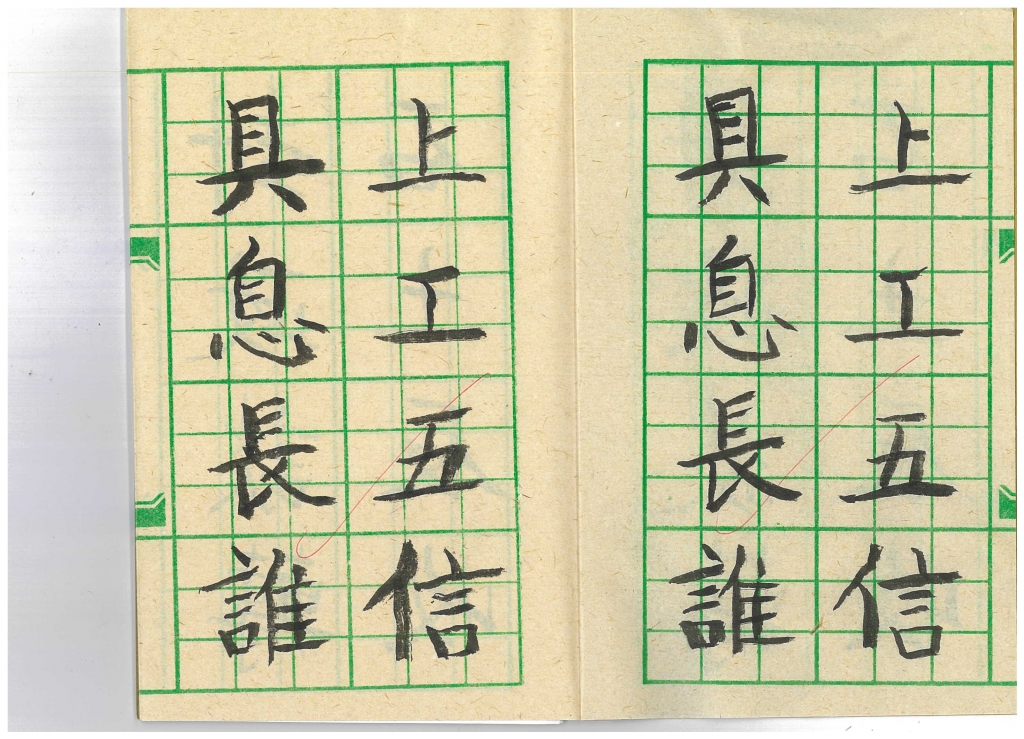 上工五信
具息長誰
上工五信
具息長誰